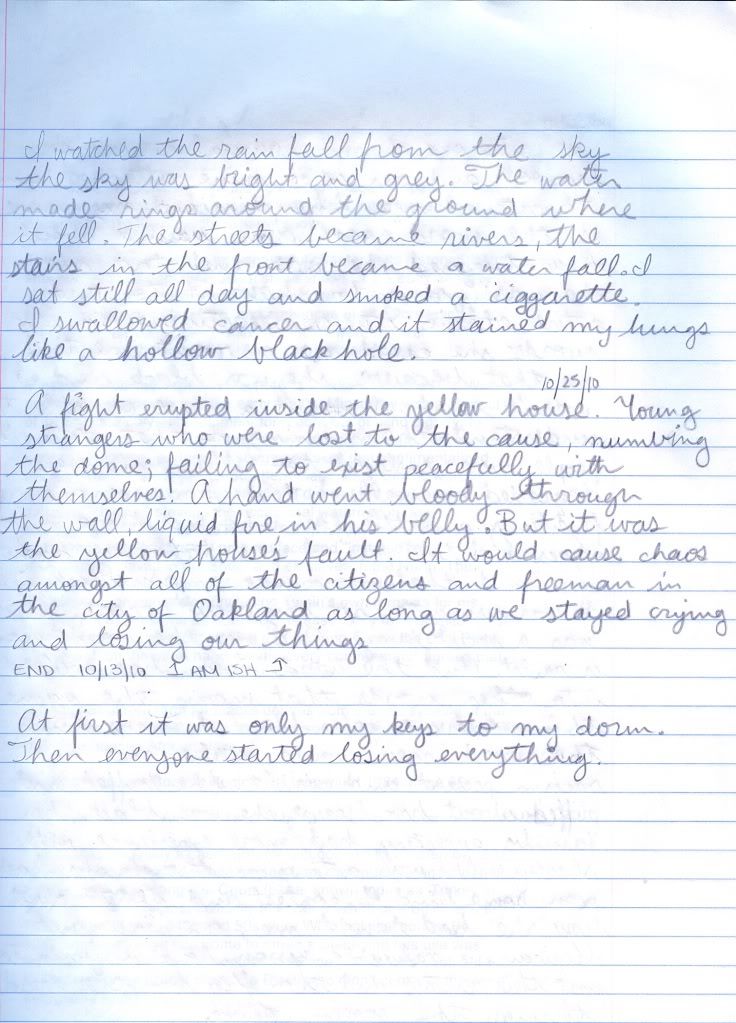 I watched the rain fall from the sky
the sky was bright and grey. The water
made rings around the ground where
it fell. The streets became rivers, the
stairs in the front became a water fall. I
sat still all day and smoked a ciggarette.
I swallowed cancer and it stained my lungs
like a hollow black hole.
10/25/10
A fight erupted inside the yellow house. Young
strangers who were lost to the cause, numbing
the dome; failing to exist peacefully with
themselves. A hand went bloody through
the wall, liquid fire in his belly. But it was
the yellow house's fault. It would cause chaos
amongst all of the citizens and freeman in
the city of Oakland as long as we stayed crying
and losing our things
END 10/13/10 1 AM ISH ↑
At first it was only my keys to my dorm.
Then everyone started losing everything.